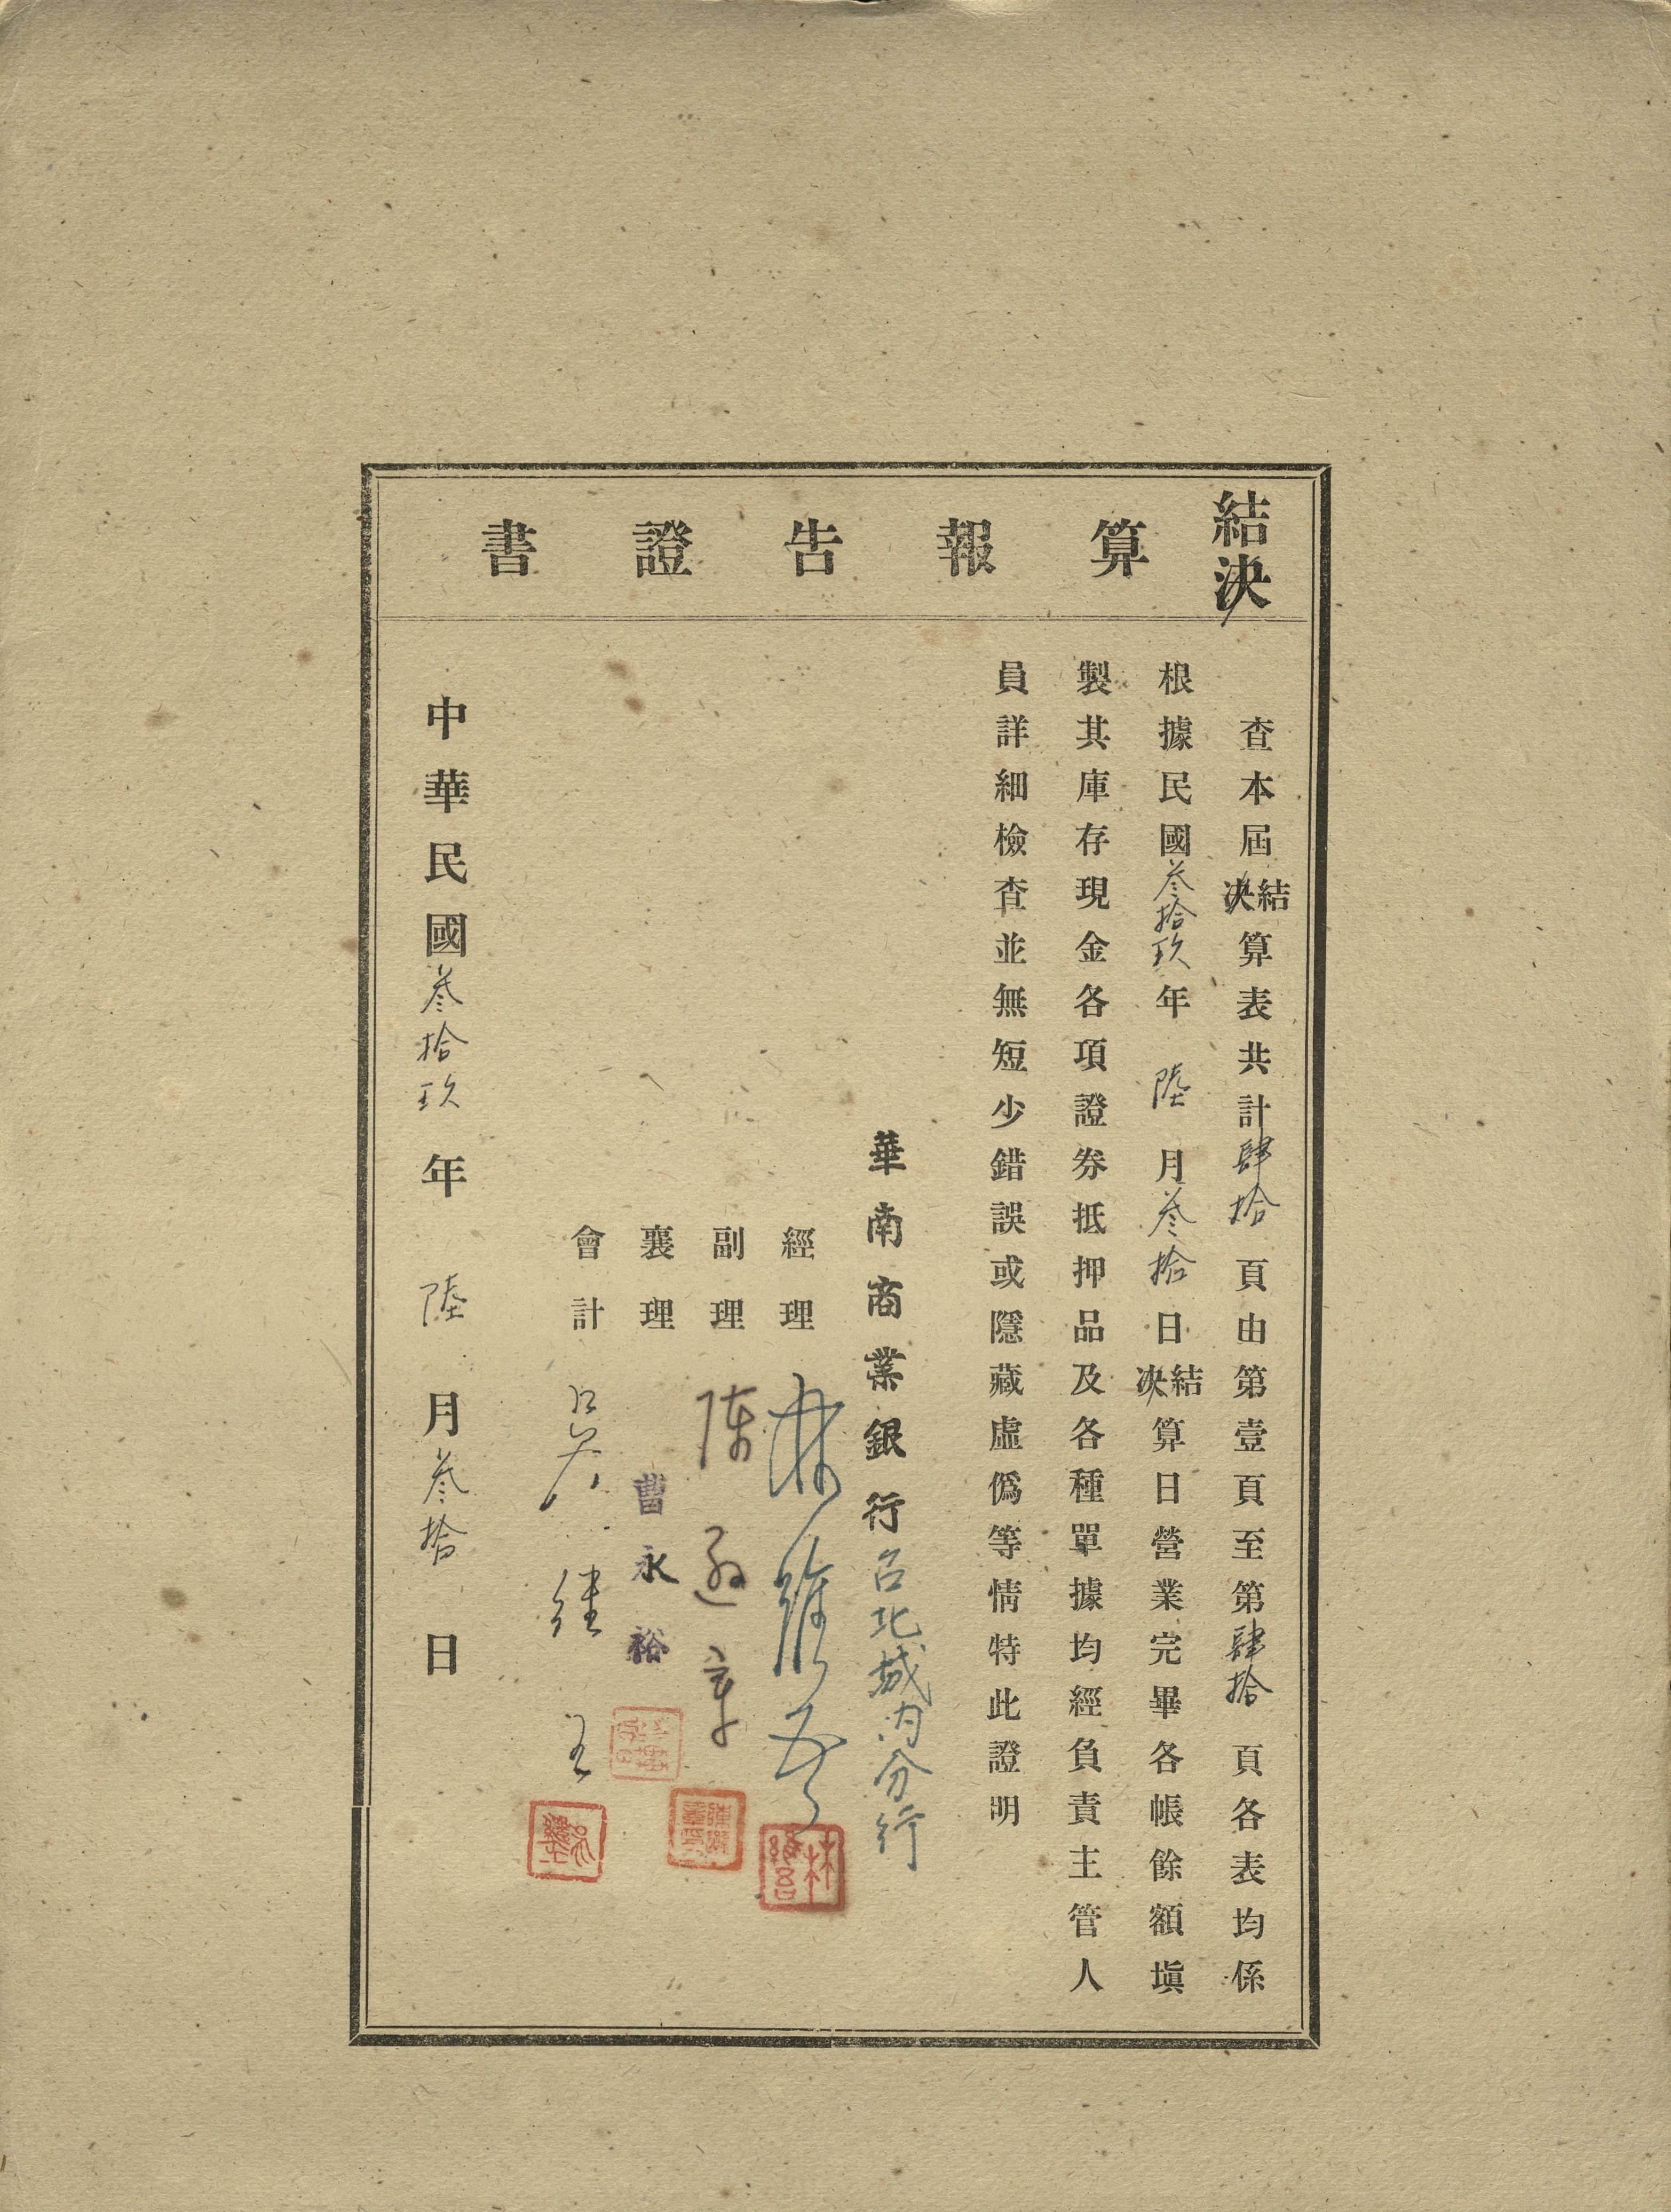 結決算報告證書
查本屆結決算表共計肆拾頁由第壹頁至第肆拾頁各表均係
根據民國叁拾玖年陸月叁拾日結決算日營業完畢各帳餘額塡
製其庫存現金各項證券抵押品及各種單據均經負責主管人
員詳細檢查並無短少錯誤或隱藏虛僞等情特此證明
華南商業銀行台北城內分行
經理 林維吾
副理 陳遜章
襄理 曹永裕
會計 吳繼玉
中華民國叁拾玖年陸月叁拾日
林維吾